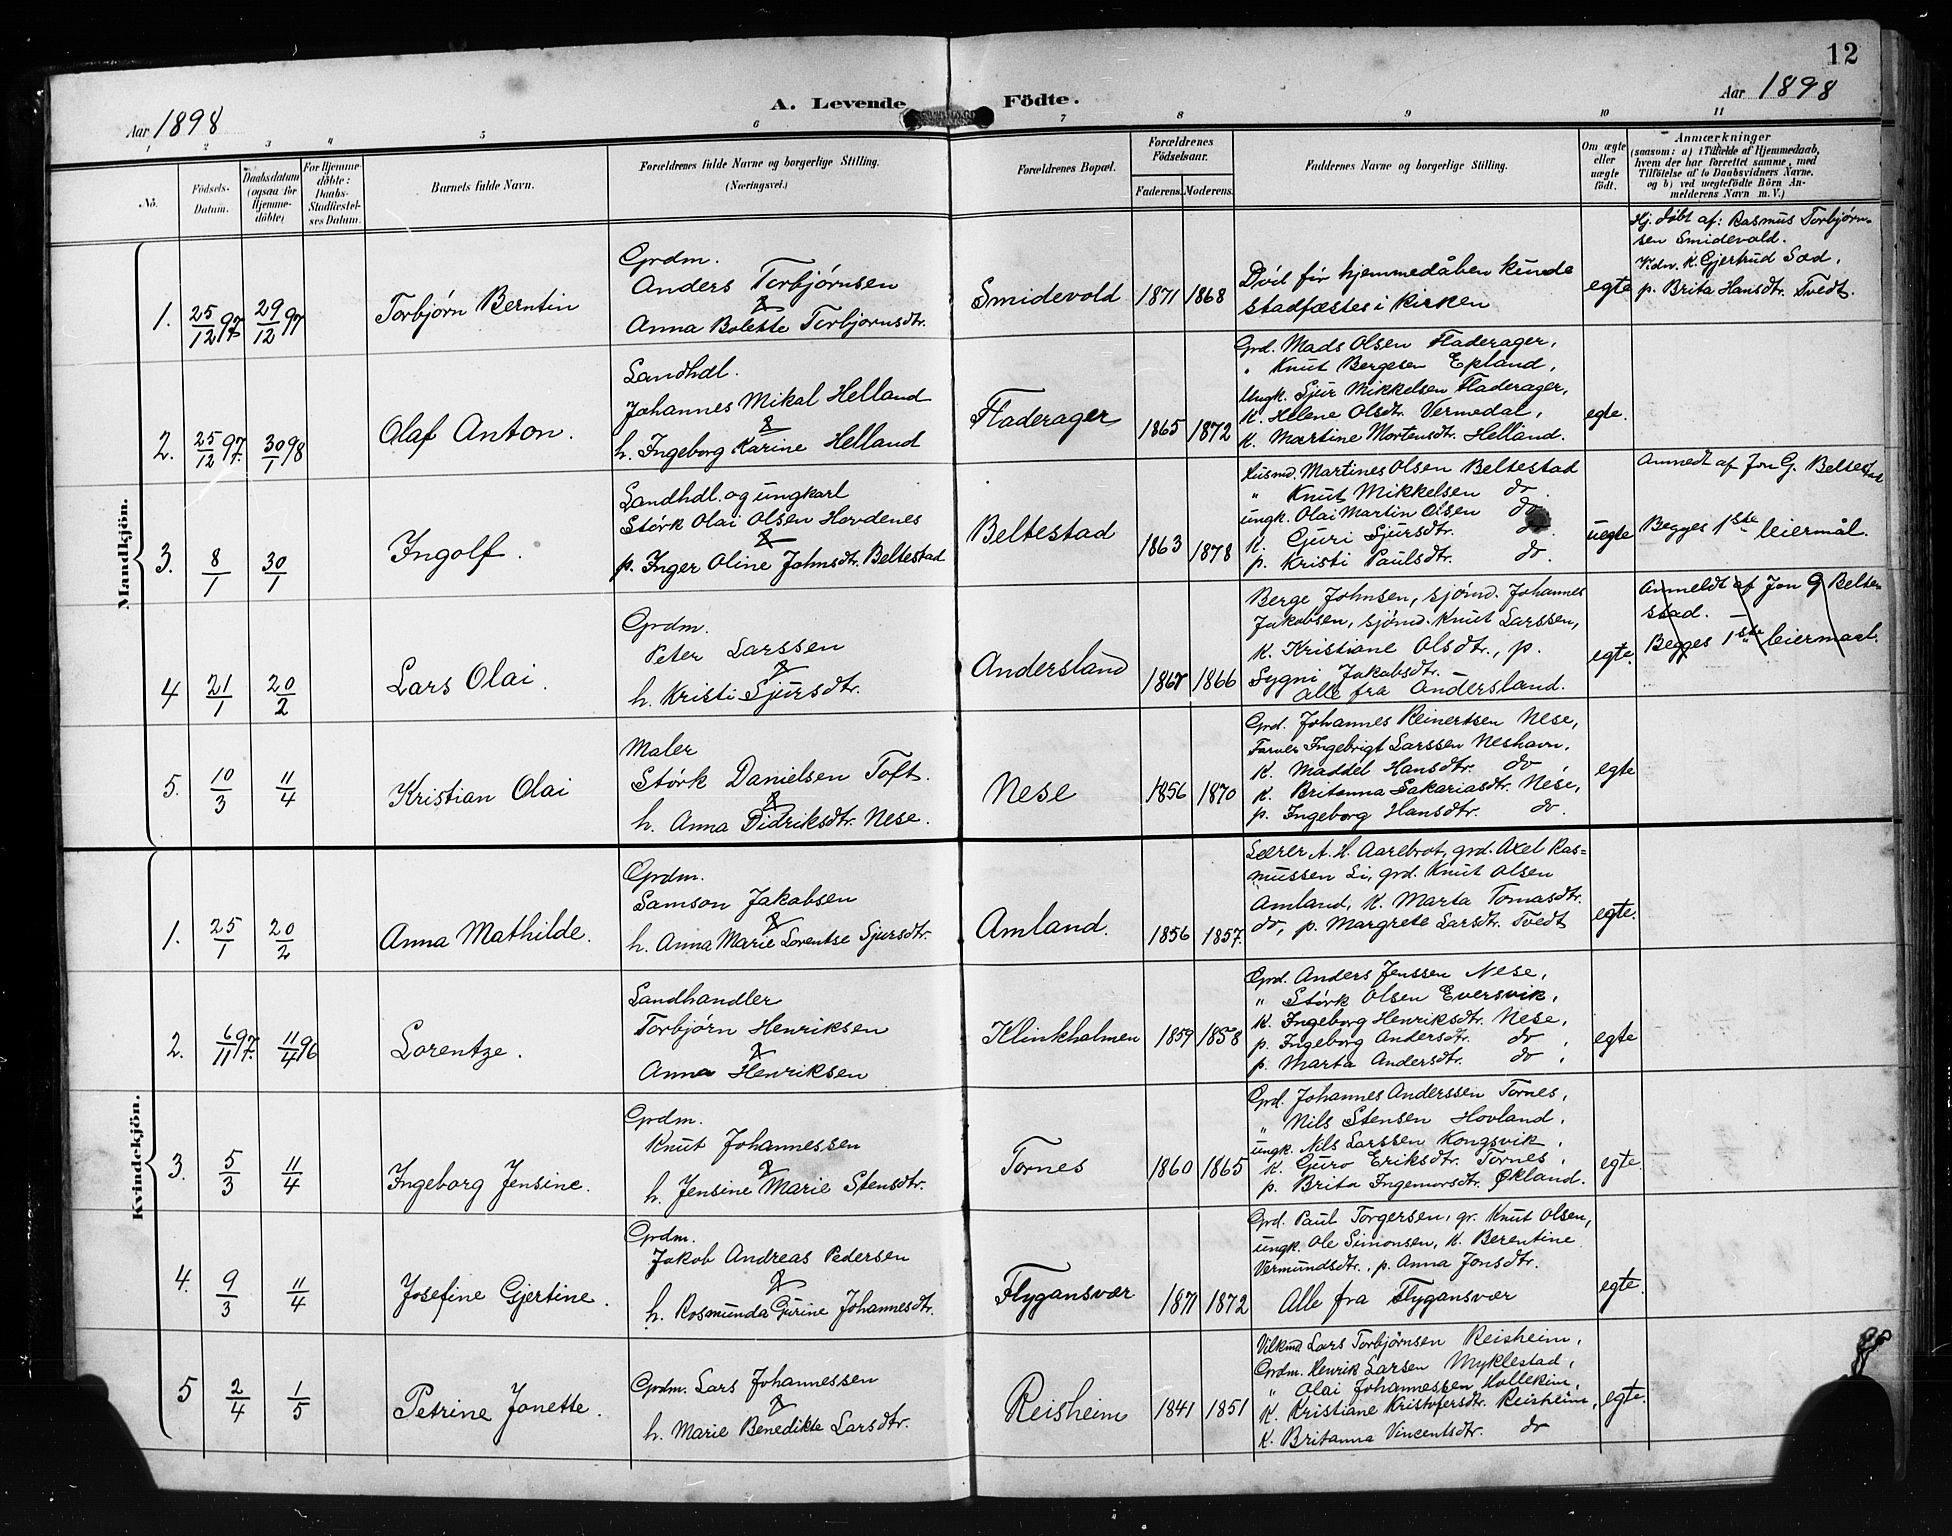 12
Aar 1898
A. Levende Födte.
Aar 1898
1 2 3 4 5 6 7 8 9 10 11
No.
Födsels-Datum.
Daabsdatum (ogsaa for Hjemme-döbte)
For Hjemme-döbte: Daabs-Stadfæstel-ses Datum.
Barnets fulde Navn.
Forældrenes fulde Navne og borgerlige Stilling. (Næringsvei.)
Forældrenes Bopæl.
Forældrenes Födselsaar.
Faderens. Moderens.
Faddernes Navne og borgerlige Stilling.
Om ægte eller uægte födt.
Anmærkninger
(saasom: a) i Tilfælde af Hjemmedaab, hvem der har forrettet samme, med Tilföielse af to Daabsvidners Navne. og b) ved uægtefödte Börn An-melderens Navn m. V.)
Mandkjön.
1. 25/12 97. 29/12 97
Torbjørn Berntin
Grdm.
Anders Torbjørnsen
&
Anna Bolette Torbjørnsdtr.
Smidevold 1871 1868
Døil før hjemmedåben kunde
stadfæstes i kirken
egte
Hj. døbt af: Rasmus Torbjørn-
sen Smidevold.
Vidn. K. Gjertrud Sæd,
p. Brita Hansdtr. Tvedt.
2. 25/12 97. 30/1 98
Olaf Anton.
Landhdl.
Johannes Mikal Helland
&
h. Ingeborg Karine Helland
Fladerager 1865 1872
Grd. Mads Olsen Fladerager,
" Knut Bergesen Epland,
Ungk. Sjur Mikkelsen Fladerager,
K. Helene Olsdtr. Vermedal,
K. Martine Mortensdtr. Helland.
egte.
3. 8/1 30/1
Ingolf.
Landhdl. og ungkarl
Størk Olai Olsen Hovdenes
&
p. Inger Oline Johnsdtr. Beltestad
Beltestad 1863 1878
Husmd. Martines Olsen Beltestad
" Knut Mikkelsen do.
ungk. Olai Martin Olsen do
K. Guri Sjursdtr. do.
p. Kristi Paulsdtr. do
uegte
Anmedt af Jon G. Beltestad
Begges 1ste leiermål.
4 21/1 20/2
Lars Olai.
Grdm.
Peter Larssen
&
h. Kristi Sjursdtr.
Andersland 1867 1866
Berge Johnsen, sjømd. Johannes
Jakobsen, sjømd. Knut Larssen,
K. Kristiane Olsdtr., p.
Sygni Jakobsdtr.
alle fra Andersland.
egte.
Anmeldt af Jon G Belte-
stad.
Begges 1ste leiermaal.
5. 10/3 11/4
Kristian Olai
Maler
Størk Danielsen Toft.
&
h. Anna Didriksdtr. Nese.
Nese 1856 1870
Grd. Johannes Reinertsen Nese,
Farver Ingebrigt Larssen Neshavn,
K. Maddel Hansdtr. do,
K. Britanna Sakariasdtr. Nese,
p. Ingeborg Hansdtr. do.
egte
Kvindekjön.
1. 25/1 20/2
Anna Mathilde.
Grdm.
Samson Jakobsen
&
h. Anna Marie Lorentse Sjursdtr.
Amland. 1856 1857.
Lærer A. H. Aarebrot, grd. Axel Ras=
mussen Li, grd. Knut Olsen
Amland, K. Marta Tomasdtr.
do, p. Margrete Larsdtr. Tvedt
egte.
2. 6/11 97. 11/4 96
Lorentze.
Landhandler
Torbjørn Henriksen
&
Anna Henriksen
Klinkholmen 1859 1858
Grd. Anders Jenssen Nese,
" Størk Olsen Eversvik,
K. Ingeborg Henriksdtr. Nese,
p. Ingeborg Andersdtr. do,
p. Marta Andersdtr. do,
egte
3. 5/3 11/4
Ingeborg Jensine.
Grdm.
Knut Johannessen
&
h. Jensine Marie Stensdtr.
Tornes 1860 1865
Grd. Johannes Anderssen Tornes,
" Nils Stensen Hovland,
ungk. Nils Larssen Kongsvik,
K. Guro Eriksdtr. Tornes,
p. Brita Ingemarsdtr. Økland.
egte.
4. 9/3 11/4
Josefine Gjertine.
Grdm.
Jakob Andreas Pedersen
&
h. Rosmunda Gurine Johannesdtr.
Flygansvær 1871 1872
Grd. Paul Torgersen, gr. Knut Olsen,
ungk. Ole Simonsen, K. Berentine
Vermundsdtr., p. Anna Jonsdtr.
Alle fra Flygansvær
egte.
5 2/4 1/5
Petrine Jonette.
Grdm. Lars Johannessen
&
h. Marie Benedikte Larsdtr.
Reisheim 1841 1851
Vilkmd Lars Torbjørnsen Reisheim,
Grdm. Henrik Larsen Myklestad,
" Olai Johannessen Hollekim,
K. Kristiane Kristofersdtr. Reisheim,
K. Britanna Vincentsdtr. do
egte.